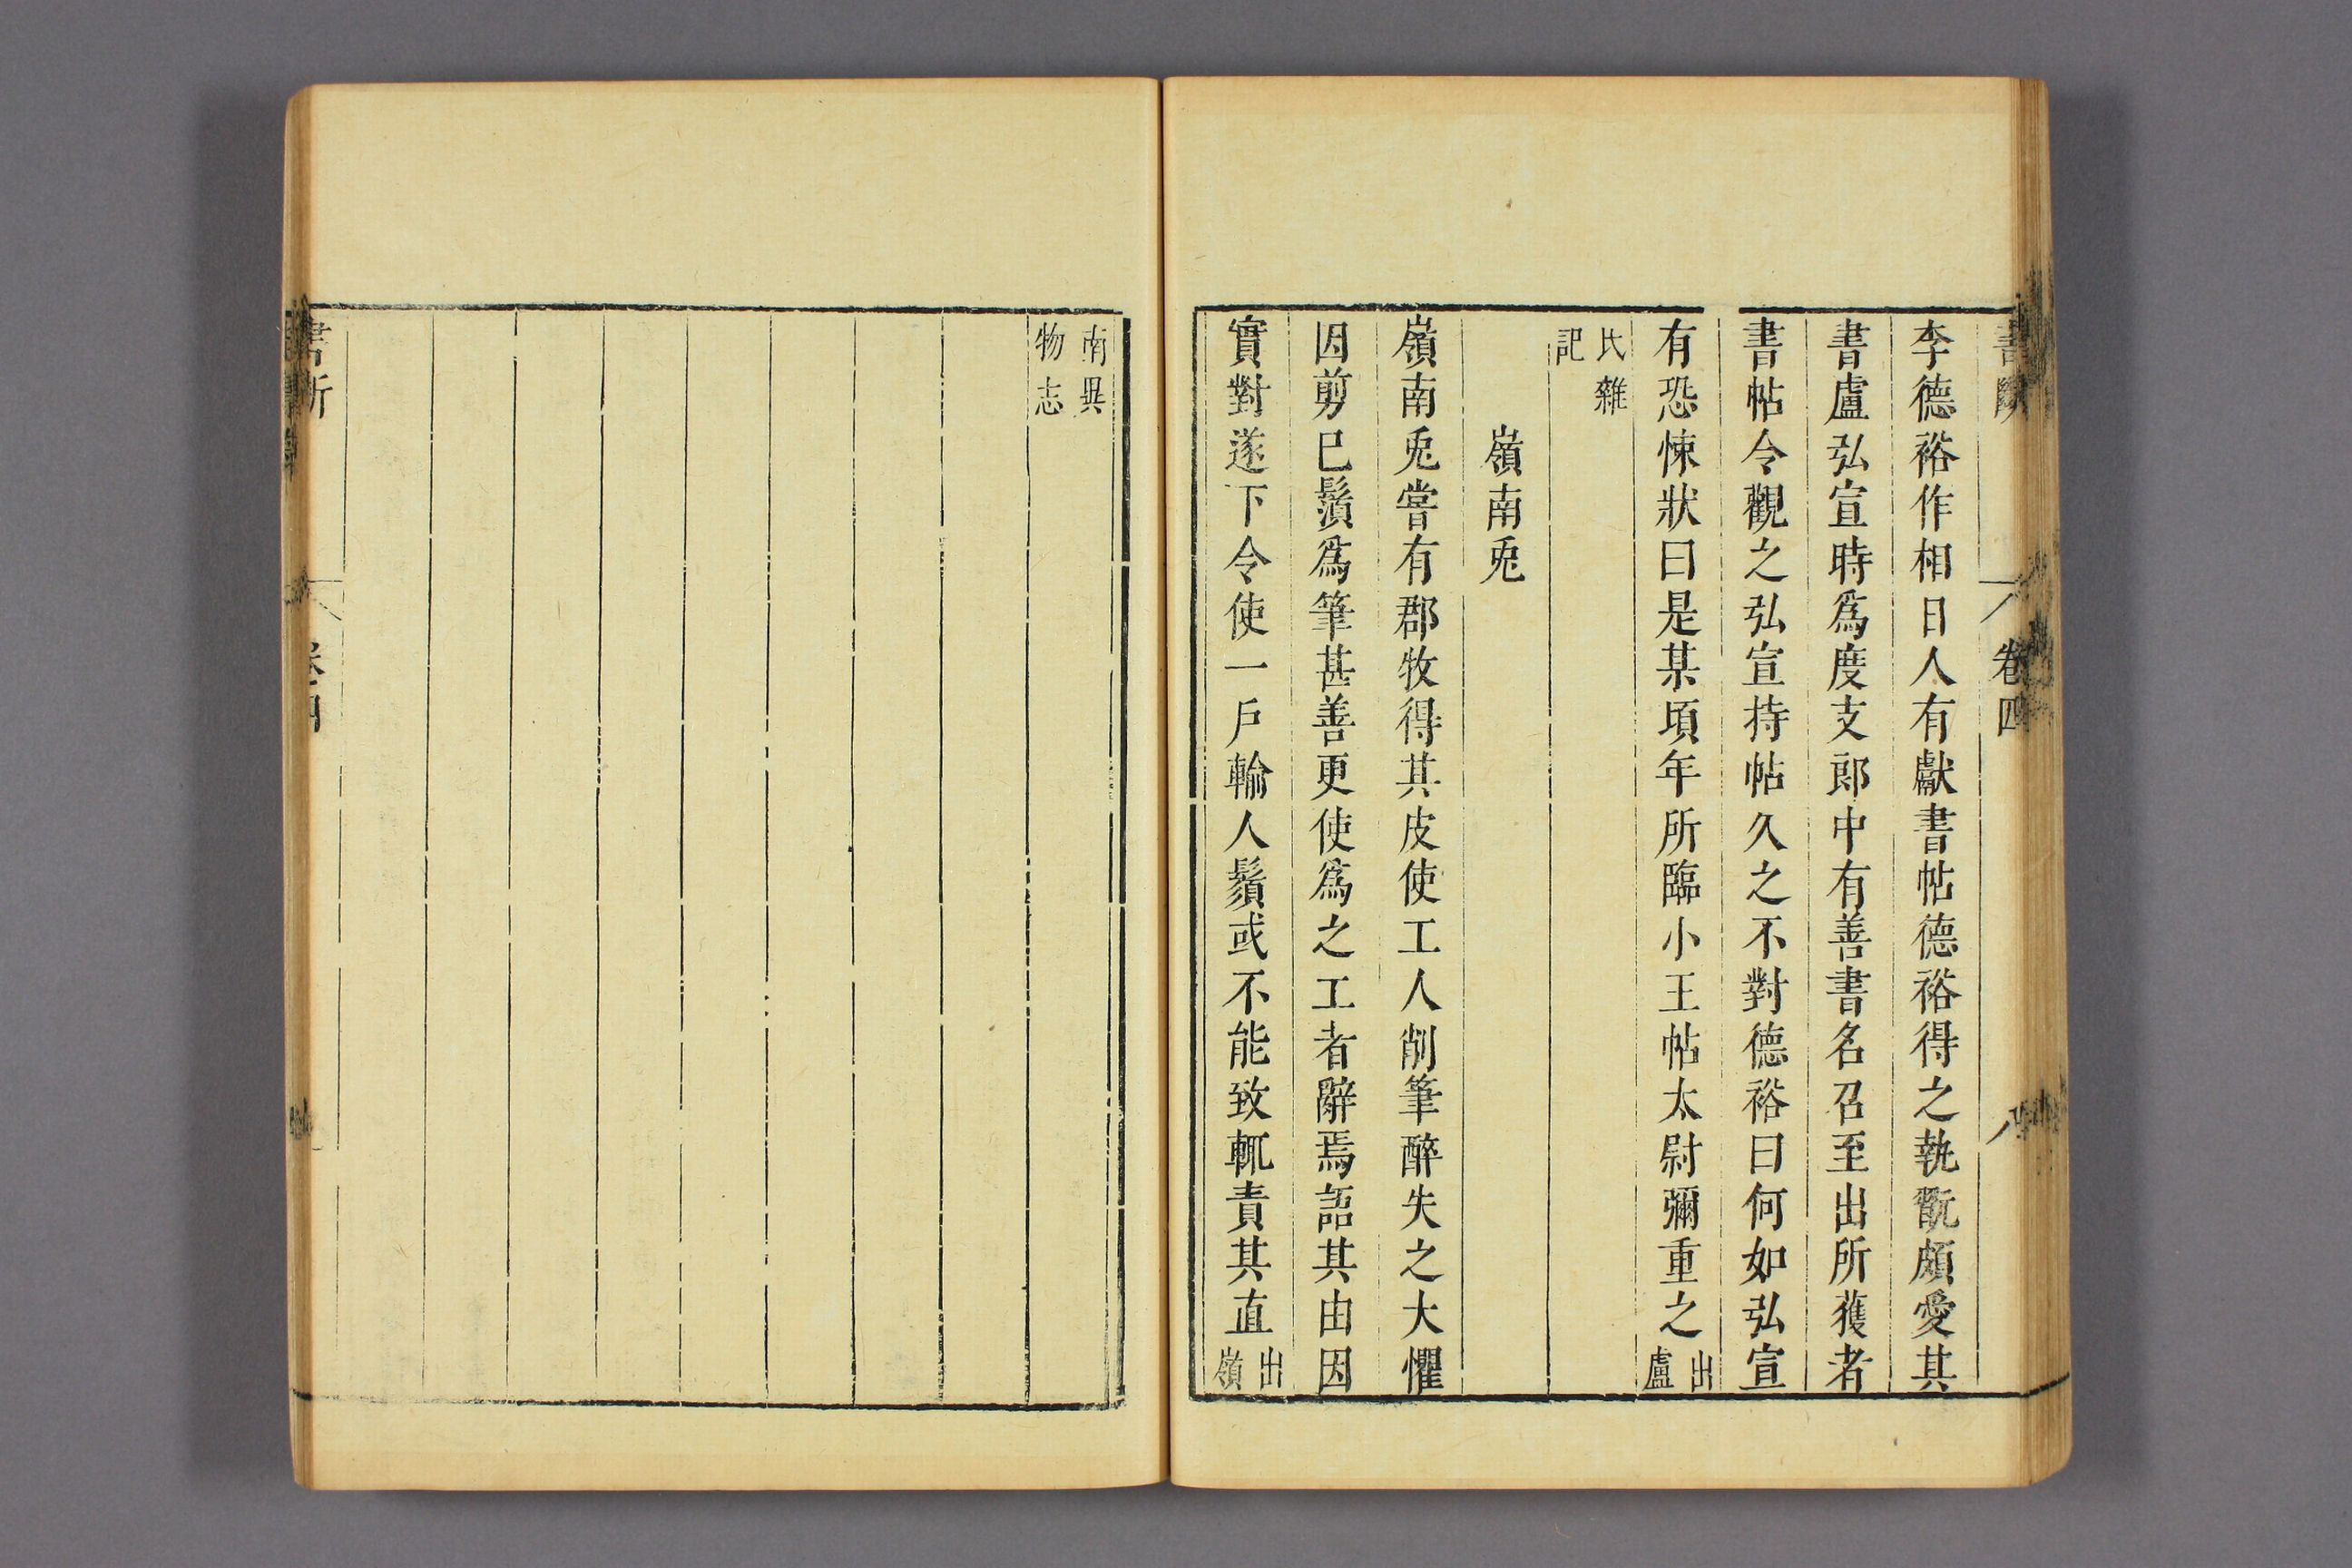 書斷
卷四
李德裕作相日人有獻書帖德裕得之執翫頗愛其
書盧弘宣時爲度支郎中有善書名召至出所獲者
書帖令觀之弘宣持帖久之不對德裕曰何如弘宣
有恐悚狀曰是某頃年所臨小王帖太尉彌重之出盧
氏雜
記
嶺南兎
嶺南兎嘗有郡牧得其皮使工人削筆醉失之大懼
因剪巳鬚爲筆甚善更使爲之工者辭焉語其由因
實對遂下令使一戶輸人鬚或不能致輒責其直出嶺
南異
物志
書斷
卷四